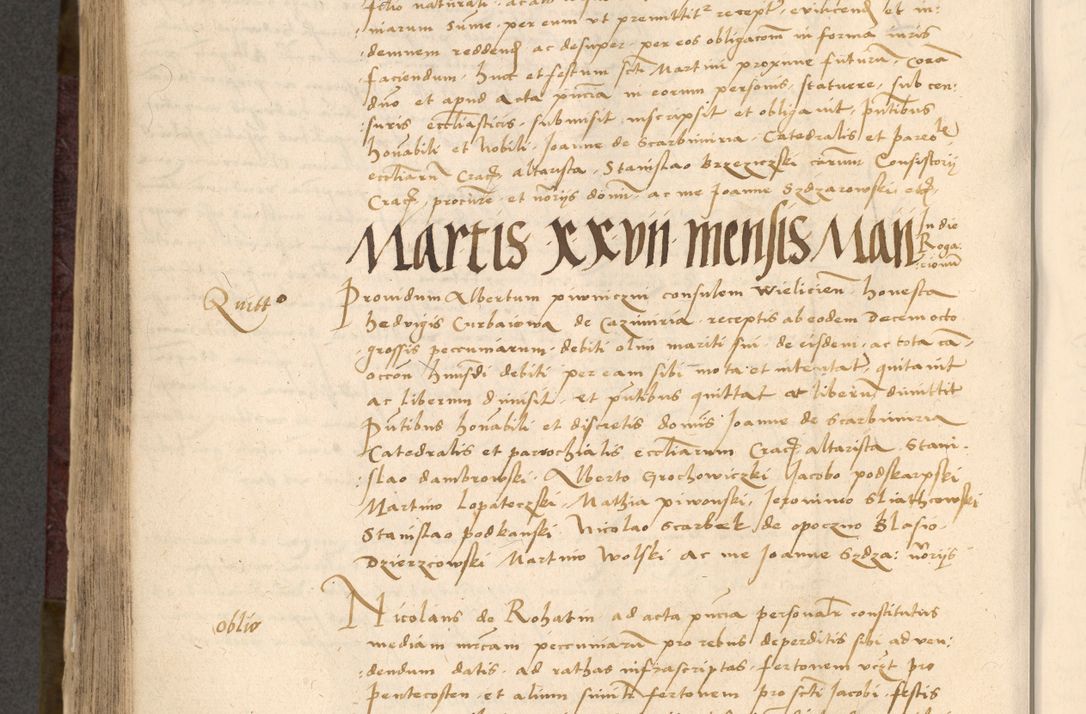 marum summe per eum ut premittitr recept, evincend et in:
:demnem reddend ac desuper per eos obligacom in forma iuris
faciendum hinc et festum scti Martini proxime futurum, coram
duo et apud acta pncia in eorum personis, statuere, sub cen:
:suris eccliasticis submisit, inscripsit et obligavit, pntibus
honabili et Nobili Joanne de Scarbimiria Catedralis et parole
eccliarum Crac altarista, Stanislao Brzeziczski carum Consistorij
Crac, procure et norijs domi, ac me Joanne Szdzarowski etc.
Martis xxvii mensis Maii
In die
Roga:
:cionum
Quitto
Providum Albertum piwniczni consulem Wielicien honesta
hedvigis Curbaiowa de Cazimiria receptis ab eodem Decem octo
grossis peccuniarum debiti olim mariti sui de eisdem, ac tota ca-
occon huiusdi debiti per eam sibi mota et intentat, quitavit
ac liberum dimisit, et pntibus quittat et liberum dimittit
Pntibus honabili et discretis domis Joanne de Scarbimiria
Catedralis et parrochialis eccliarum Crac altarista, Stani-
:slao dambrowski, Alberto Grochowiczki Jacobo podskarpski
Martino Lopateczski, Mathia piwonski, Jeronimo Sliathcowski
Stanislao podkanski Nicolao Scarbek de opoczno Blasio
Dzierzcowski Martino Wolski ac me Joanne Szdza: norijs
oblio
Nicolaus de Rohatin ad acta pncia personalr constitutus
mediam mcam peccuniarum pro rebus deperditis sibi ad ven:
:dendum datis, ad rathas infrascriptas, fertonem vczt pro
Pentecosten et alium simile fertonem pro scti Jacobi festis